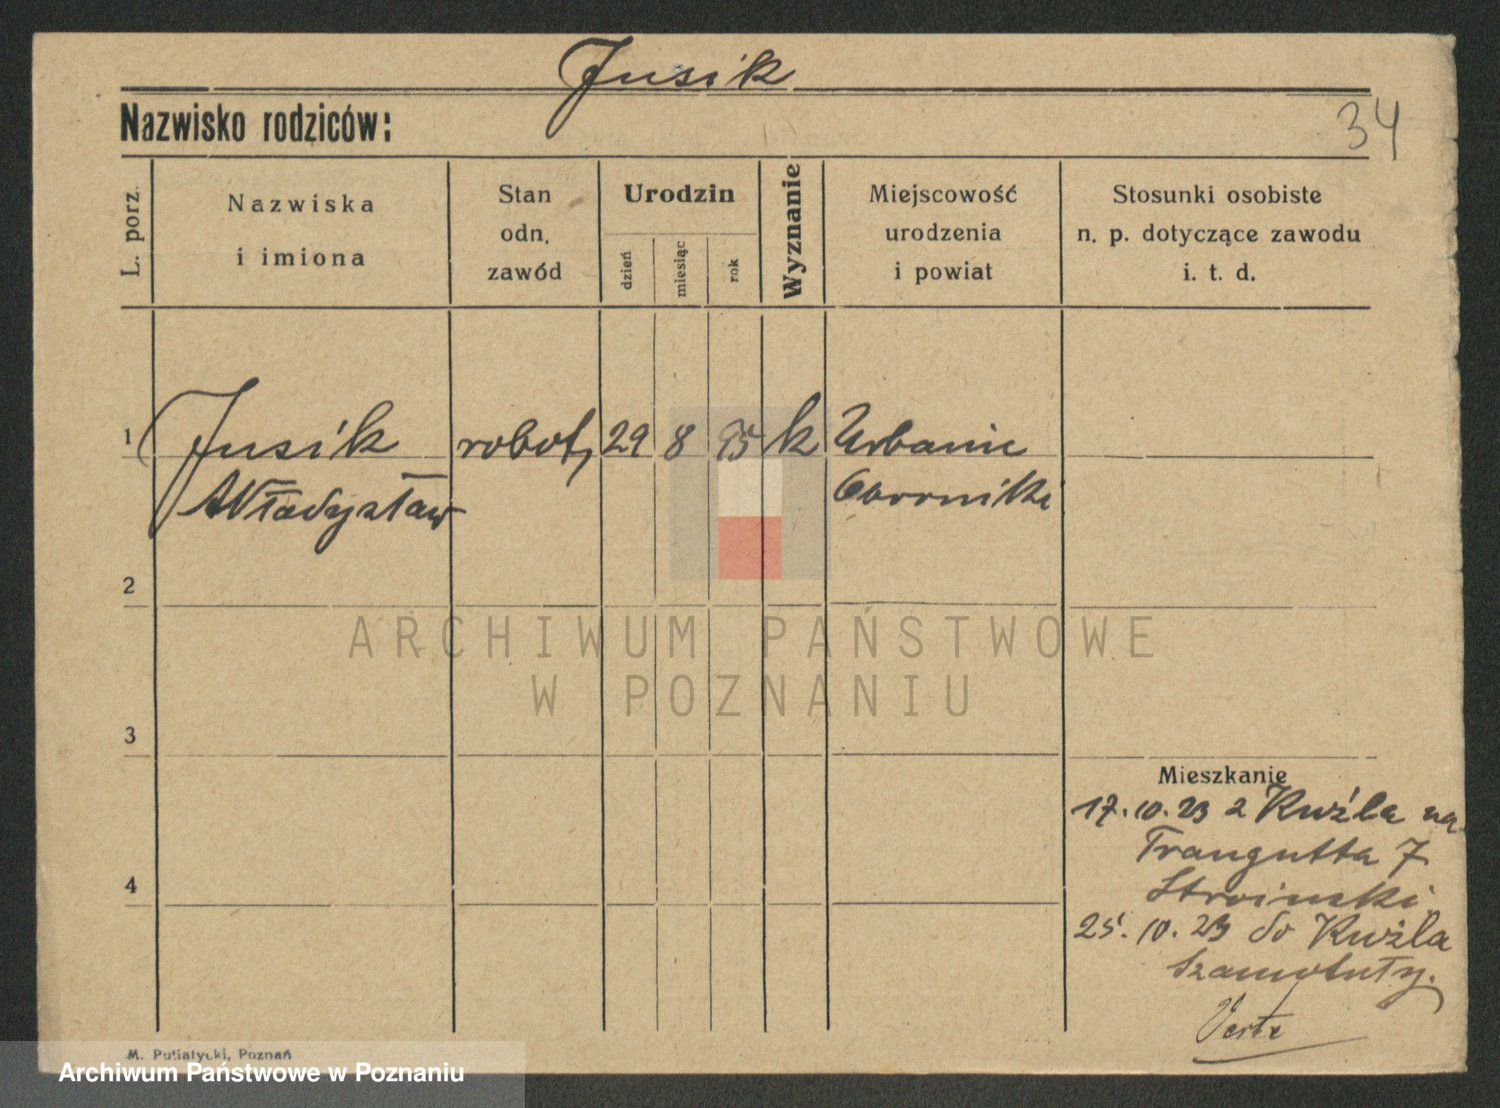 Jusik
Nazwisko rodziców:
34
L. porz.
Nazwiska
i imiona
Stan
odn.
zawód
Urodzin
dzień
miesiąc
rok
Wyznanie
Miejscowość
urodzenia
i powiat
Stosunki osobiste
n. p. dotyczące zawodu
i. t. d.
1 Jusik robot, 29 8 95 k Urbanie
Władysław Oborniki
2
3
4
ARCHIWUM PAŃSTWOWE
W POZNANIU
Mieszkanie
17. 10. 23 z Kuźla na
Traugutta 7
Stroinski
25. 10. 23 do Kuźla
Szamotuły.
Verte
M. Putiatycki, Poznań
Archiwum Państwowe w Poznaniu